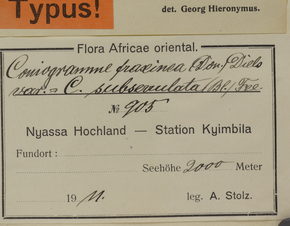 Typus!
det. Georg Hieronymus.
Flora Africae oriental.
Coniogramme fraxinea (Don) Diels
var. = C. subseaulata (Bl) Fée
№ 905
Nyassa Hochland — Station Kyimbila
Fundort:
Seehöhe 2000 Meter
19 11. leg. A. Stolz.